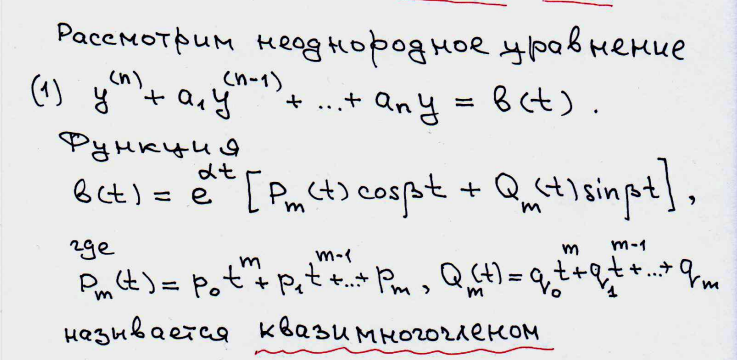 Рассмотрим неоднородное уравнение
(1) y^(n) + a₁y^(n-1) + ... + aₙy = b(t).
Функция
b(t) = e^αt [Pₘ(t)cosβt + Qₘ(t)sinβt],
где
Pₘ(t) = p₀t^m + p₁t^m-1 + ... + pₘ, Qₘ(t) = q₀t^m + q₁t^m-1 + ... + qₘ
называется квазимногочленом